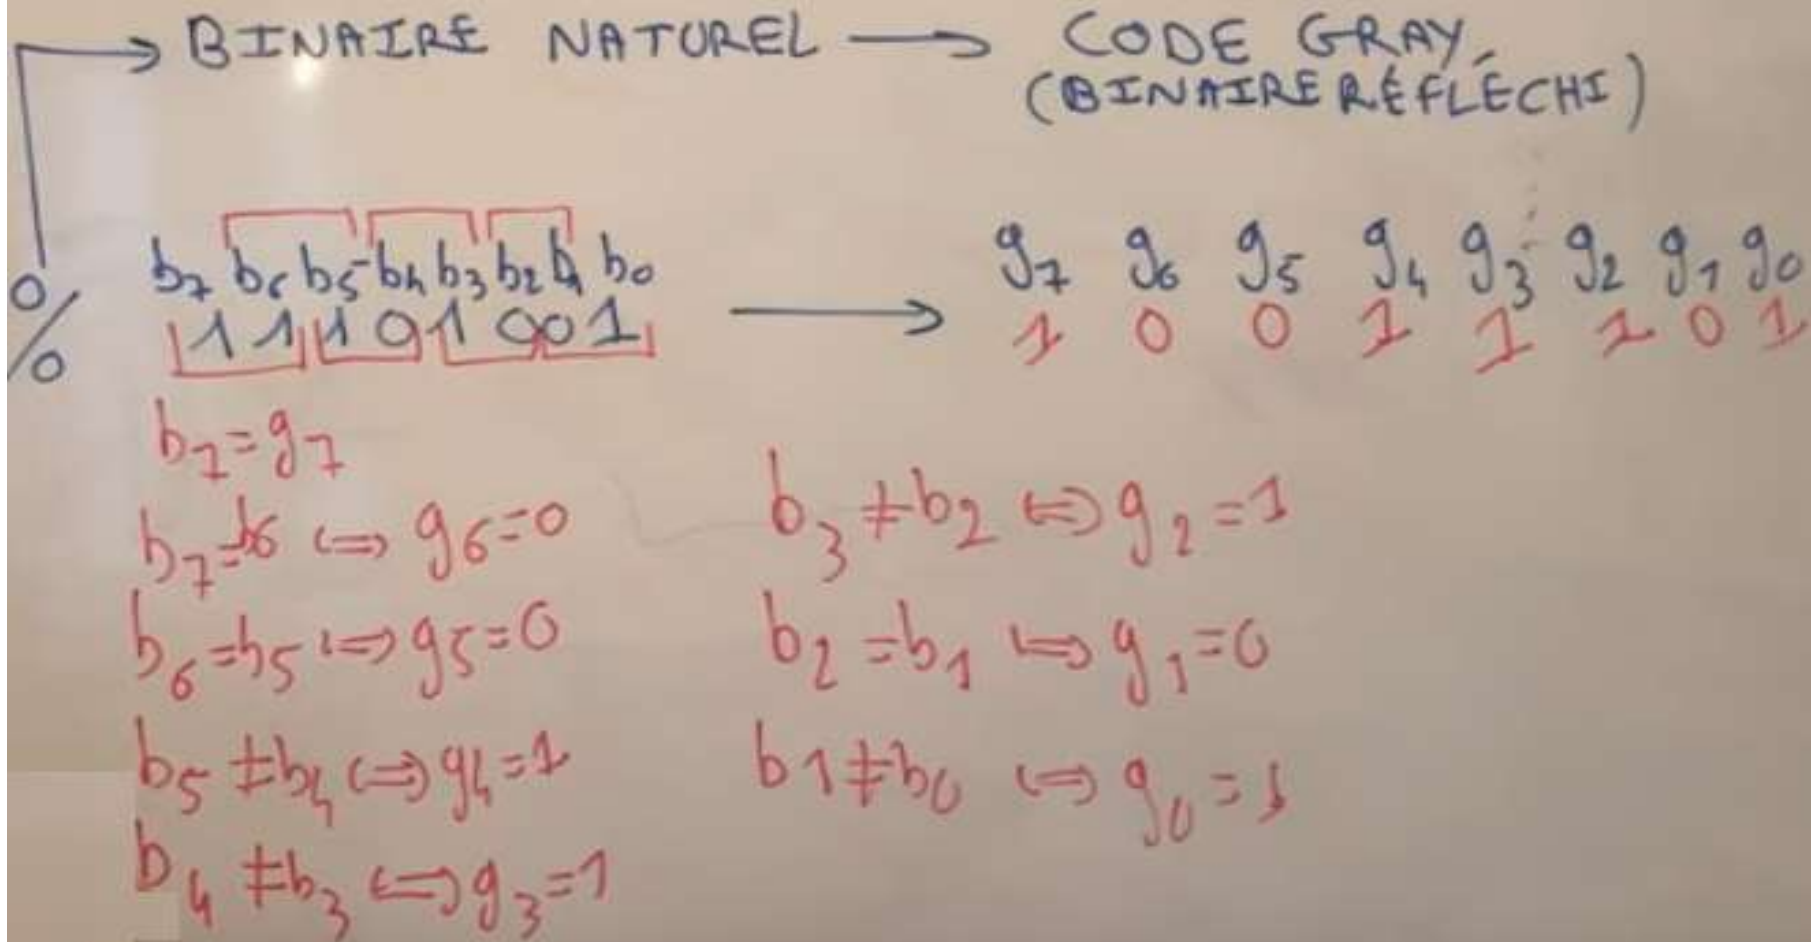 → BINAIRE NATUREL → CODE GRAY
(BINAIRE RÉFLÉCHI)
b₇ b₆ b₅ b₄ b₃ b₂ b₁ b₀ g₇ g₆ g₅ g₄ g₃ g₂ g₁ g₀
% 11101001 → 1 0 0 1 1 1 0 1
b₇=g₇
b₇=b₆ ⇔ g₆=0
b₆=b₅ ⇔ g₅=0
b₅≠b₄ ⇔ g₄=1
b₄≠b₃ ⇔ g₃=1
b₃≠b₂ ⇔ g₂=1
b₂=b₁ ⇔ g₁=0
b₁≠b₀ ⇔ g₀=1